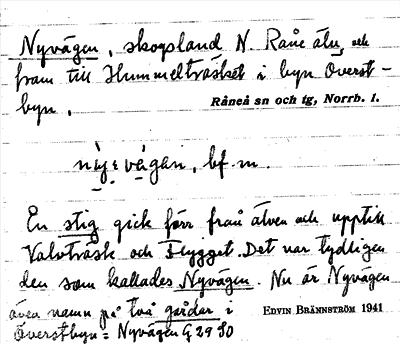 Nyvägen, skogsland N. Råne älv och
fram till Hummelträsket i byn Överst-
byn.
Råneå sn och tg, Norrb. l.
bf. m.
En stig gick förr från älven och upp till
Valvträsk och Flygget. Det var tydligen
den som kallades Nyvägen. Nu är Nyvägen
även namn på två gårdar i
EDVIN BRÄNNSTRÖM 1941
Överstbyn = Nyvägen G 29 SO